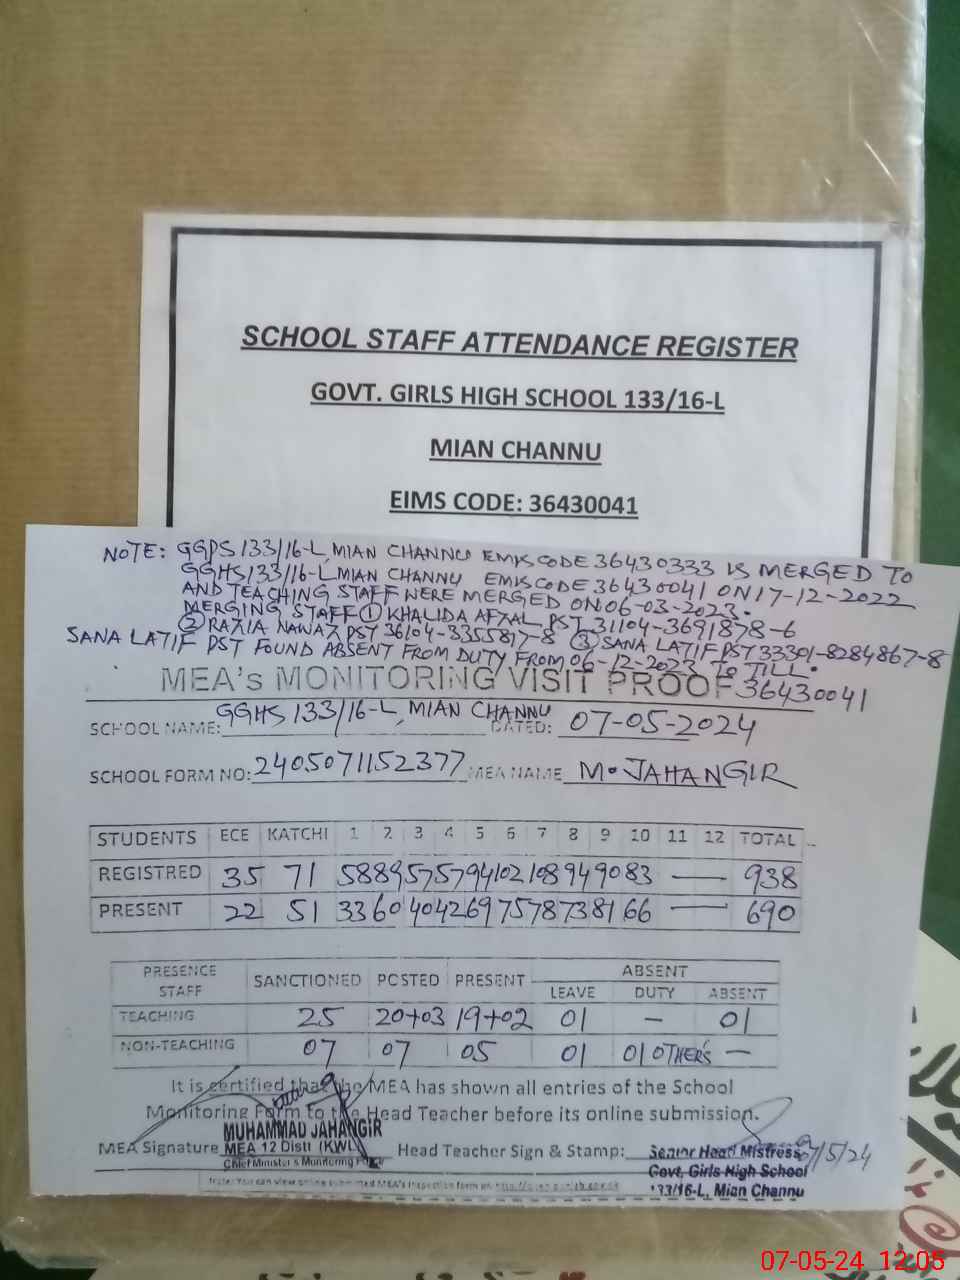 SCHOOL STAFF ATTENDANCE REGISTER
GOVT. GIRLS HIGH SCHOOL 133/16-L
MIAN CHANNU
EIMS CODE: 36430041
NOTE: GGPS 133/16-L, MIAN CHANNU EMIS CODE 36430333 IS MERGED TO
GGHS 133/16-L, MIAN CHANNU EMIS CODE 36430041 ON 17-12-2022
AND TEACHING STAFF WERE MERGED ON 06-03-2023.
MERGING STAFF ① KHALIDA AFZAL PST 31104-3691878-6
② RAZIA NAWAZ PST 36104-3355817-8 ③ SANA LATIF PST 33301-8284867-8
SANA LATIF PST FOUND ABSENT FROM DUTY FROM 06-12-2023 TO TILL.
MEA's MONITORING VISIT PROOF 36430041
SCHOOL NAME: GGHS 133/16-L, MIAN CHANNU DATED: 07-05-2024
SCHOOL FORM NO: 2405071152377 MEA NAME M. JAHANGIR
STUDENTS ECE KATCHI 1 2 3 4 5 6 7 8 9 10 11 12 TOTAL
REGISTRED 35 71 58 89 57 57 94 102 108 94 90 83 — 938
PRESENT 22 51 33 60 40 42 69 75 78 73 81 66 — 690
PRESENCE STAFF SANCTIONED POSTED PRESENT ABSENT
LEAVE DUTY ABSENT
TEACHING 25 20+03 19+02 01 — 01
NON-TEACHING 07 07 05 01 01 OTHER'S —
It is certified that the MEA has shown all entries of the School
Monitoring Form to the Head Teacher before its online submission.
MUHAMMAD JAHANGIR
MEA Signature MEA 12 Distt (KWL) Head Teacher Sign & Stamp: Senior Head Mistress 7/5/24
Chief Minister's Monitoring Force
Govt. Girls High School
133/16-L, Mian Channu
Note: You can view online submitted MEA's inspection form on
07-05-24 12:05